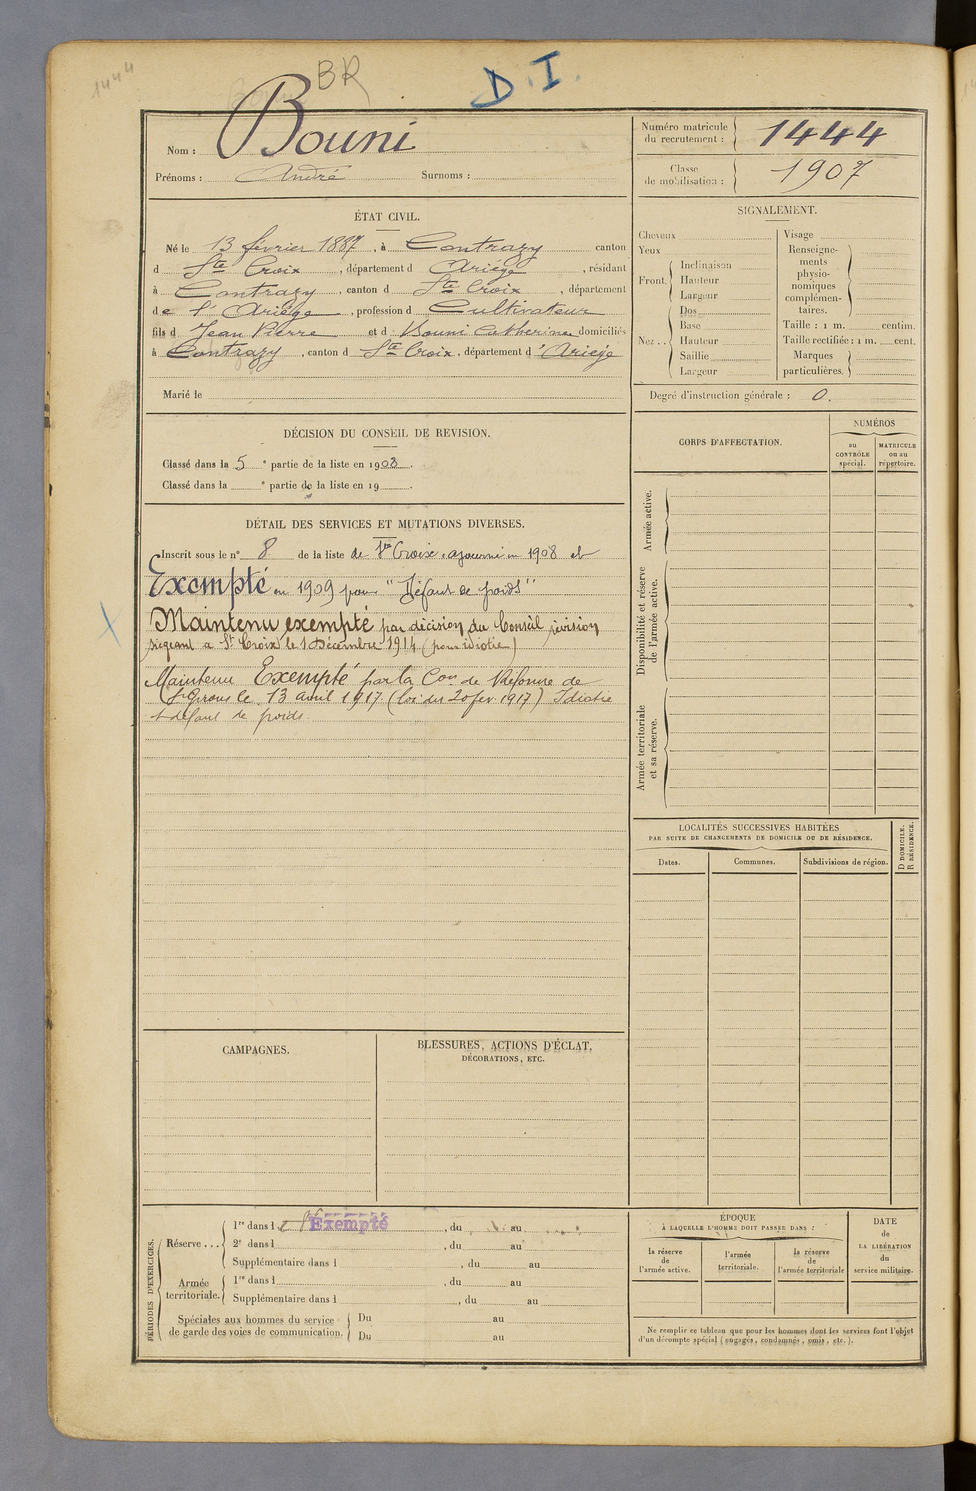 1444
BR
D. I.
Nom : Bouni
Prénoms : André Surnoms :
Numéro matricule du recrutement : 1444
Classe de mobilisation : 1907
ÉTAT CIVIL.
Né le 13 février 1887, à Contrazy canton
d Ste Croix, département d Ariége, résidant
à Contrazy, canton d Ste Croix, département
de l'Ariége, profession d Cultivateur
fils d Jean Pierre et d Bouni Catherine domiciliés
à Contrazy, canton d Ste Croix, département d'Ariége
Marié le
SIGNALEMENT.
Cheveux
Yeux
Front. Inclinaison
Hauteur
Largeur
Nez .. Dos
Base
Hauteur
Saillie
Largeur
Visage
Renseigne-
ments
physio-
nomiques
complémen-
taires.
Taille : 1 m. centim.
Taille rectifiée : 1 m. cent.
Marques
particulières.
Degré d'instruction générale : 0.
DÉCISION DU CONSEIL DE REVISION.
Classé dans la 5 e partie de la liste en 1908.
Classé dans la e partie de la liste en 19 .
DÉTAIL DES SERVICES ET MUTATIONS DIVERSES.
Inscrit sous le n° 8 de la liste de Ste Croix. ajourné en 1908 et
Exempté en 1909 pour "Défaut de poids"
Maintenu exempté par décision du Conseil révision
siégeant a St Croix le 1 Décembre 1914 (pour idiotie)
Maintenu Exempté par la Con de Réforme de
St Girons le 13 avril 1917 (loi du 20 fev. 1917) Idiotie
et défaut de poids.
CORPS D'AFFECTATION.
NUMÉROS
au
CONTRÔLE
spécial.
MATRICULE
ou au
répertoire.
Armée active.
Disponibilité et réserve
de l'armée active.
Armée territoriale
et sa réserve.
LOCALITÉS SUCCESSIVES HABITÉES
PAR SUITE DE CHANGEMENTS DE DOMICILE OU DE RÉSIDENCE.
Dates. Communes. Subdivisions de région.
D DOMICILE.
R RÉSIDENCE.
CAMPAGNES.
BLESSURES, ACTIONS D'ÉCLAT,
DÉCORATIONS, ETC.
PÉRIODES D'EXERCICES.
Réserve ...
1re dans l Exempté , du au
2e dans l , du au
Supplémentaire dans l , du au
Armée
territoriale.
1re dans l , du au
Supplémentaire dans l , du au
Spéciales aux hommes du service
de garde des voies de communication.
Du au
Du au
ÉPOQUE
À LAQUELLE L'HOMME DOIT PASSER DANS :
la réserve
de
l'armée active.
l'armée
territoriale.
la réserve
de
l'armée territoriale
DATE
de
LA LIBÉRATION
du
service militaire.
Ne remplir ce tableau que pour les hommes dont les services font l'objet
d'un décompte spécial (engagés, condamnés, omis, etc.).